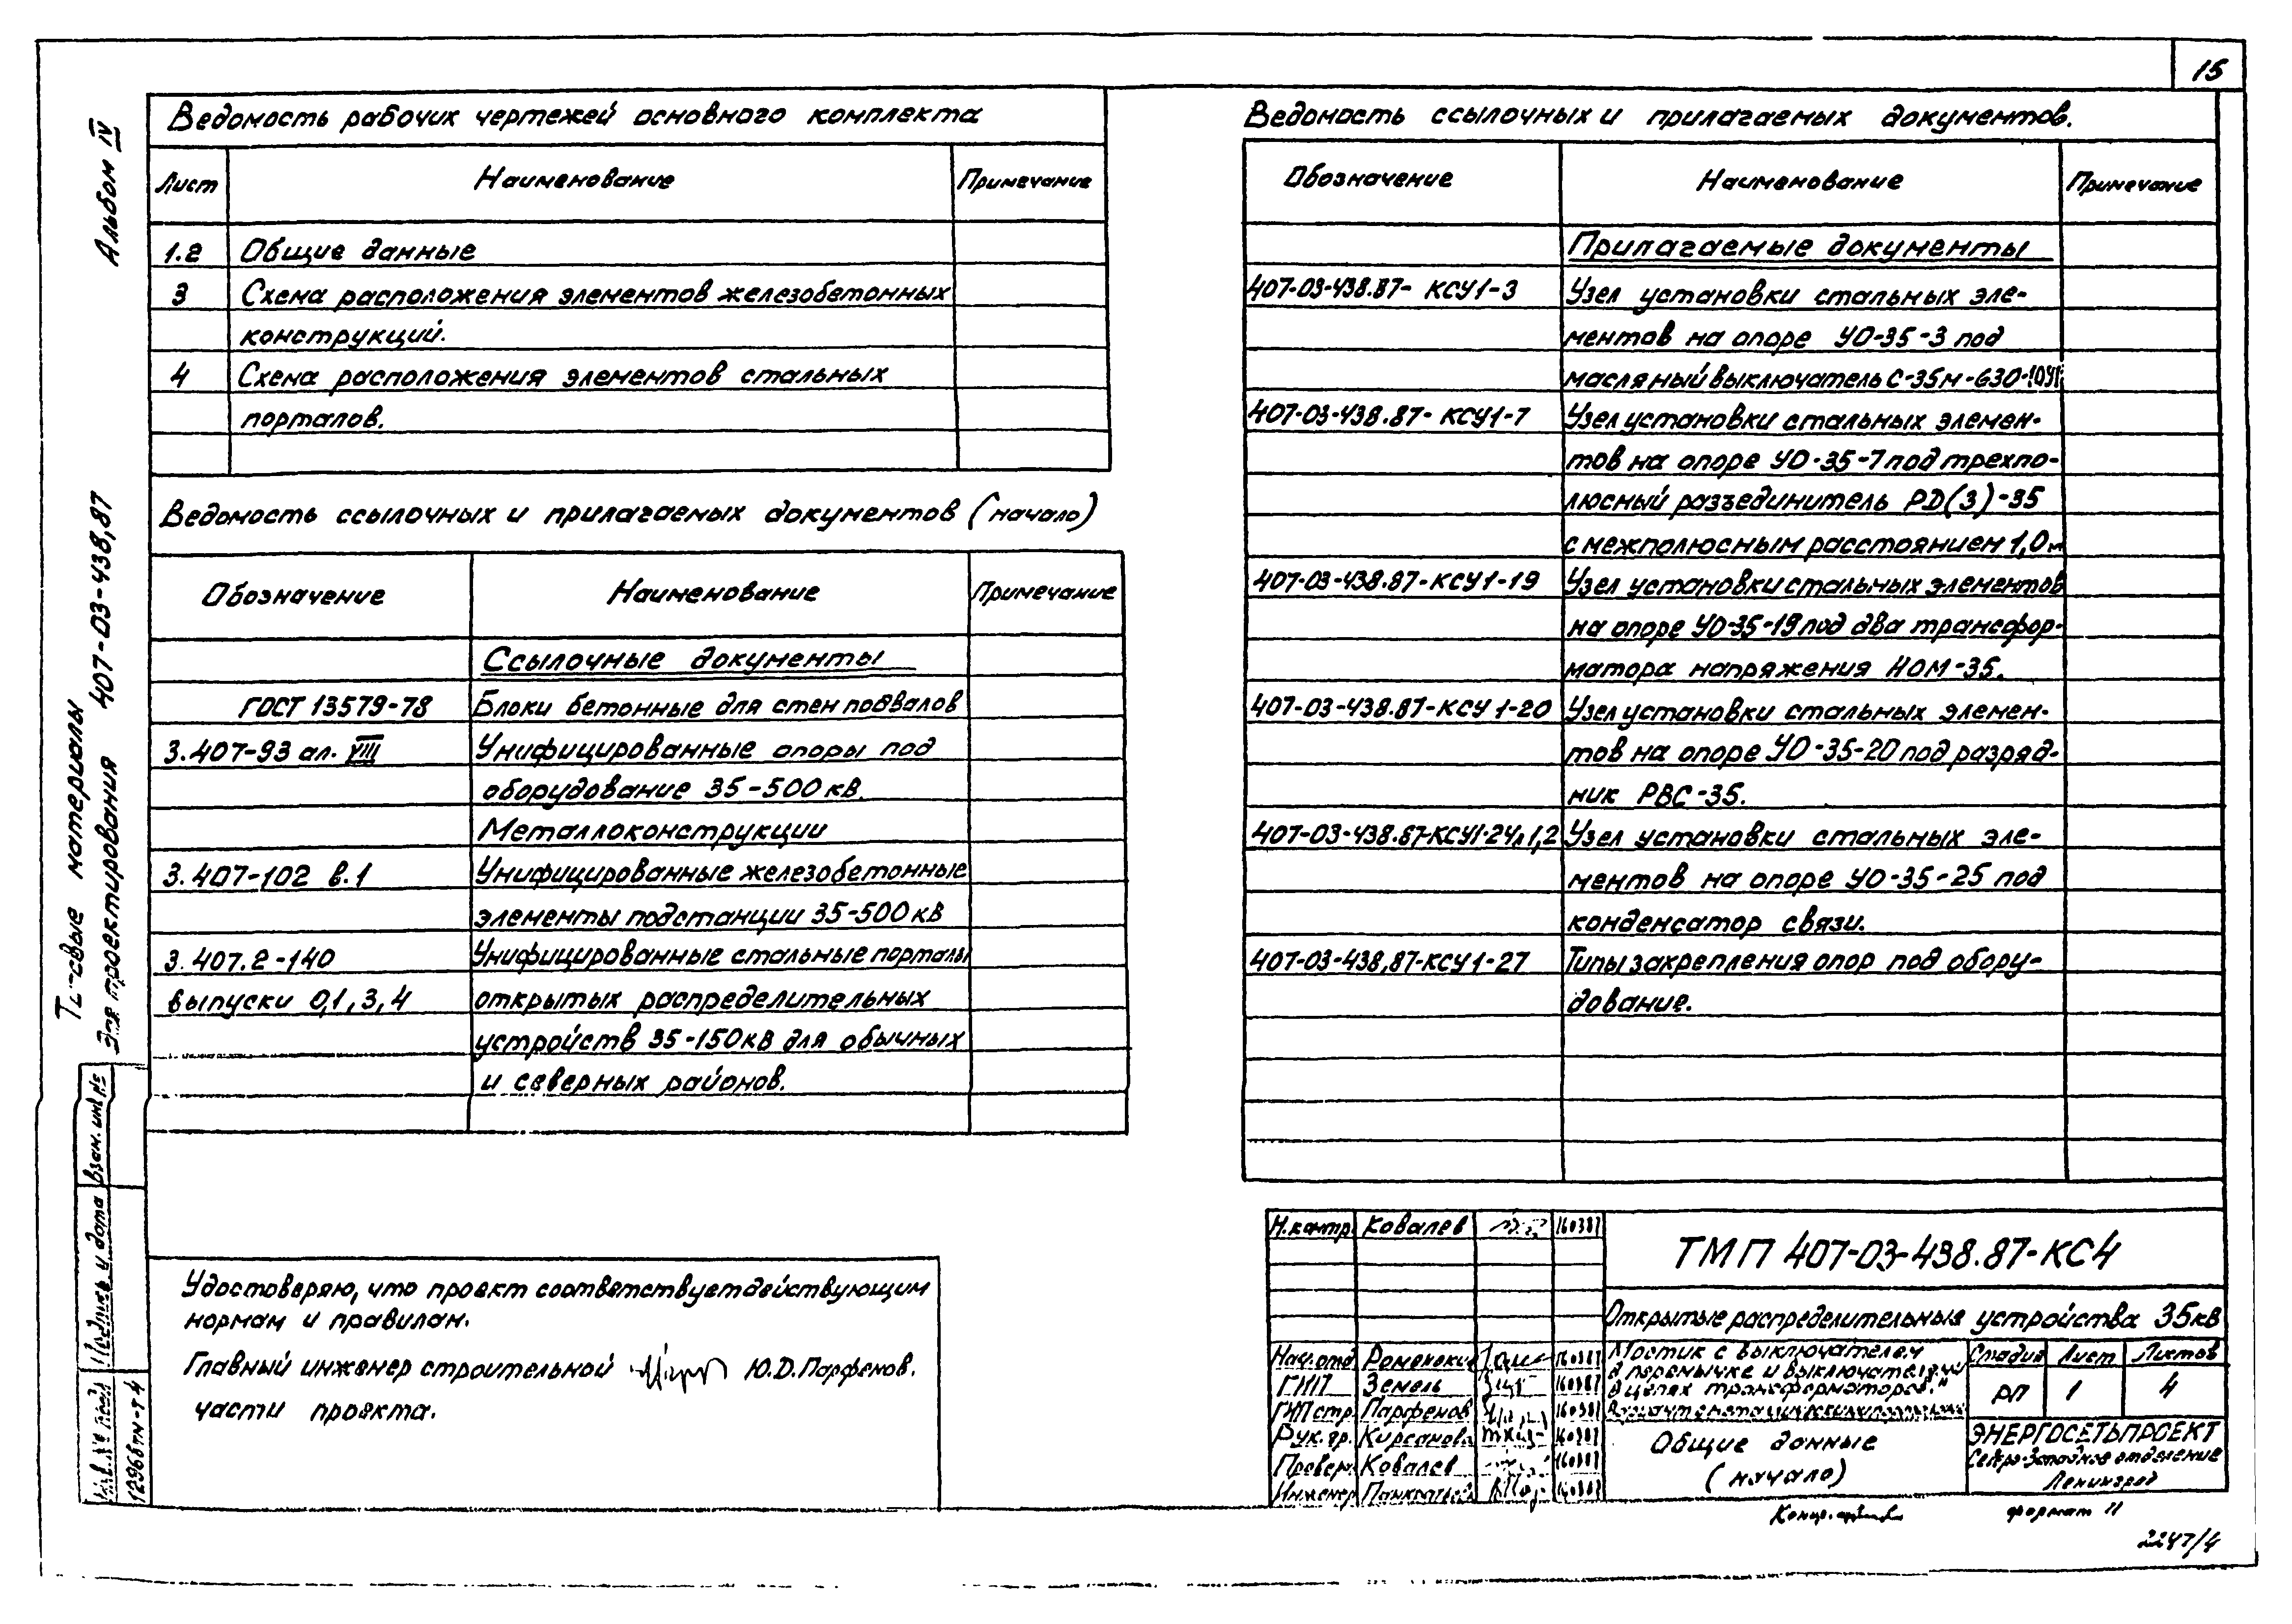 15
Альбом IV
Ведомость рабочих чертежей основного комплекта
Лист Наименование Примечание
1.2 Общие данные
3 Схема расположения элементов железобетонных
конструкций.
4 Схема расположения элементов стальных
порталов.
Ведомость ссылочных и прилагаемых документов (начало)
Обозначение Наименование Примечание
Ссылочные документы
ГОСТ 13579-78 Блоки бетонные для стен подвалов
3.407-93 ал. VIII Унифицированные опоры под
оборудование 35-500 кВ.
Металлоконструкции
3.407-102 в.1 Унифицированные железобетонные
элементы подстанции 35-500 кВ
3.407.2-140 Унифицированные стальные порталы
выпуски 0,1,3,4 открытых распределительных
устройств 35-150 кВ для обычных
и северных районов.
материалы
проектирования 407-03-438,87
Взам. инв. №
Подпись и дата
12968тм-т4
Удостоверяю, что проект соответствует действующим
нормам и правилам.
Главный инженер строительной Ю.D.Парфенов.
части проекта.
Ведомость ссылочных и прилагаемых документов.
Обозначение Наименование Примечание
Прилагаемые документы
407-03-438.87- КСУ1-3 Узел установки стальных эле-
ментов на опоре УО-35-3 под
масляный выключатель С-35м-630-10У1
407-03-438.87- КСУ1-7 Узел установки стальных элемен-
тов на опоре УО-35-7 под трехпо-
люсный разъединитель РD(З)-35
с межполюсным расстоянием 1,0м
407-03-438.87-КСУ1-19 Узел установки стальных элементов
на опоре УО-35-19 под два трансфор-
матора напряжения НОМ-35.
407-03-438.87-КСУ1-20 Узел установки стальных элемен-
тов на опоре УО-35-20 под разряд-
ник РВС-35.
407-03-438.87-КСУ1-24л1,2 Узел установки стальных эле-
ментов на опоре УО-35-25 под
конденсатор связи.
407-03-438,87-КСУ1-27 Типы закрепления опор под обору-
дование.
Н.контр. Ковалев 160387
ТМП 407-03-438.87-КС4
Открытые распределительные устройства 35кВ
Нач.отд Роменский 160387
ГИП Земель 160387
ГИП стр. Парфенов 160387
Рук.гр. Кирсанова 160387
Провер. Ковалев 160387
Инженер 160387
Мостик с выключателем
в перемычке и выключателями
в цепях трансформаторов."
Стадия Лист Листов
РП 1 4
Общие данные
(начало)
ЭНЕРГОСЕТЬПРОЕКТ
Северо-Западное отделение
Ленинград
формат 11
2247/4